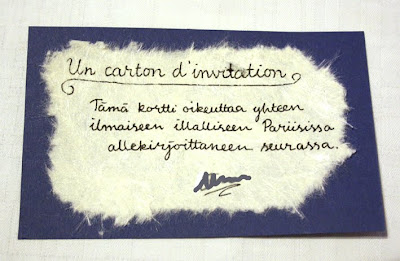 Un carton d'invitation
Tämä kortti oikeuttaa yhteen
ilmaiseen illalliseen Pariisissa
allekirjoittaneen seurassa.